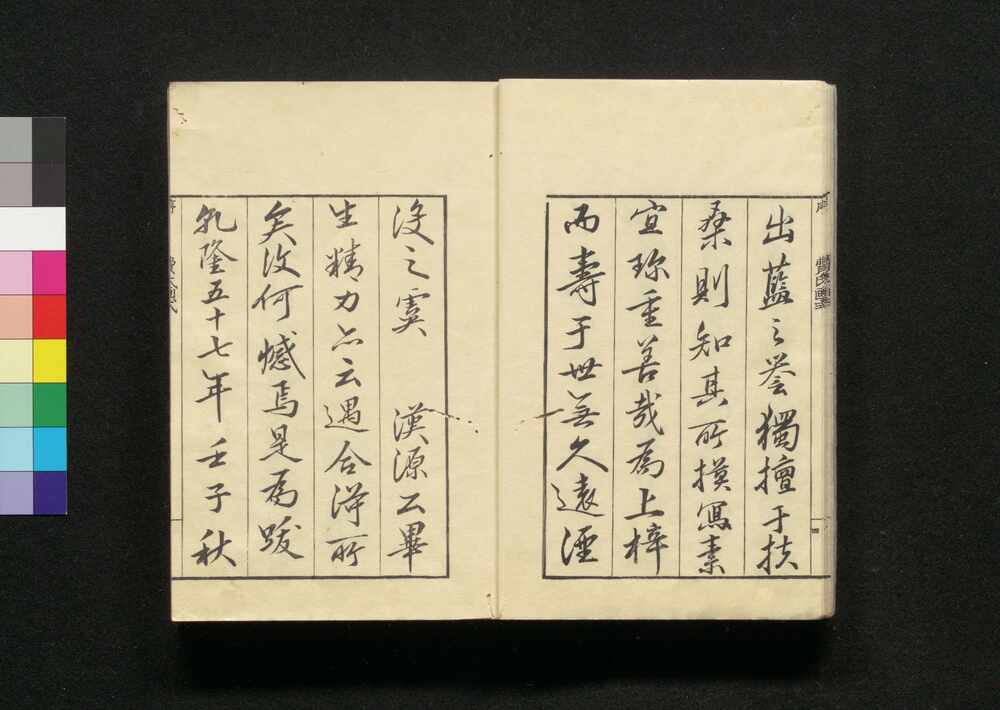 出藍之誉獨擅于扶
桑則知其所摸寫素
宜珎重善哉為上梓
而壽于世無久遠湮
没之虞　漢源公畢
生精力亦云遇合得所
矣汝何憾焉是為跋
乾隆五十七年壬子秋